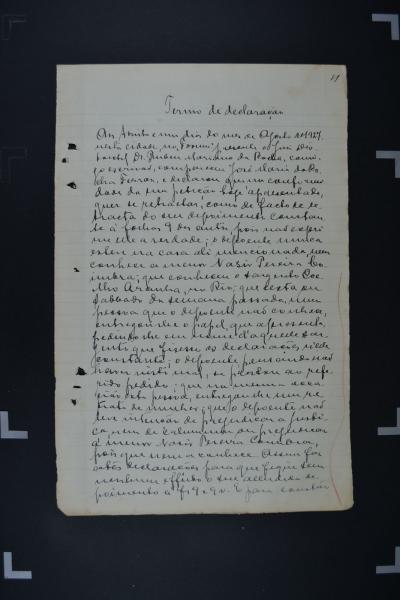 11
Termo de declaração
Aos trinta e um dias do mez de Agosto de 1927,
nesta cidade, no Forum, presente o Juiz
Dr. Ruben Mariano da Rocha, comi-
go escrivão, compareceu José Maria da
e declarou que na conformi-
dade da sua petição hoje apresentada,
quer se retractar, como de facto se re-
tracta do seu depoimento constan-
te á folhas 9 dos autos, pois não expri-
me elle a verdade; o depoente nunca
esteve na casa ali mencionada, nem
conhece a menor Nair Pereira Co-
imbra; que conheceu o sargento Coe-
lho Aranha, no Rio; que sexta ou
sabbado da semana passada, uma
pessoa que o depoente não conhece,
entregou-lhe o papel, que apresenta,
pedindo-lhe em nome d'aquelle sar-
gento que fizesse as declarações, nelle
constante; o depoente pensando não
haver nisto mal, se prestou ao refe-
rido pedido; que na mesma occa-
sião esta pessoa, entregou-lhe um re-
trato de mulher; que o depoente não
teve intenção de prejudicar a justi-
ça, nem de calumniar ou prejudicar
a menor Nair Pereira Coimbra,
pois que nem a conhece. Assim faz
estas declarações para que fique sem
nenhum effeito o seu alludido de-
poimento a fls 9 e 9v. E para constar